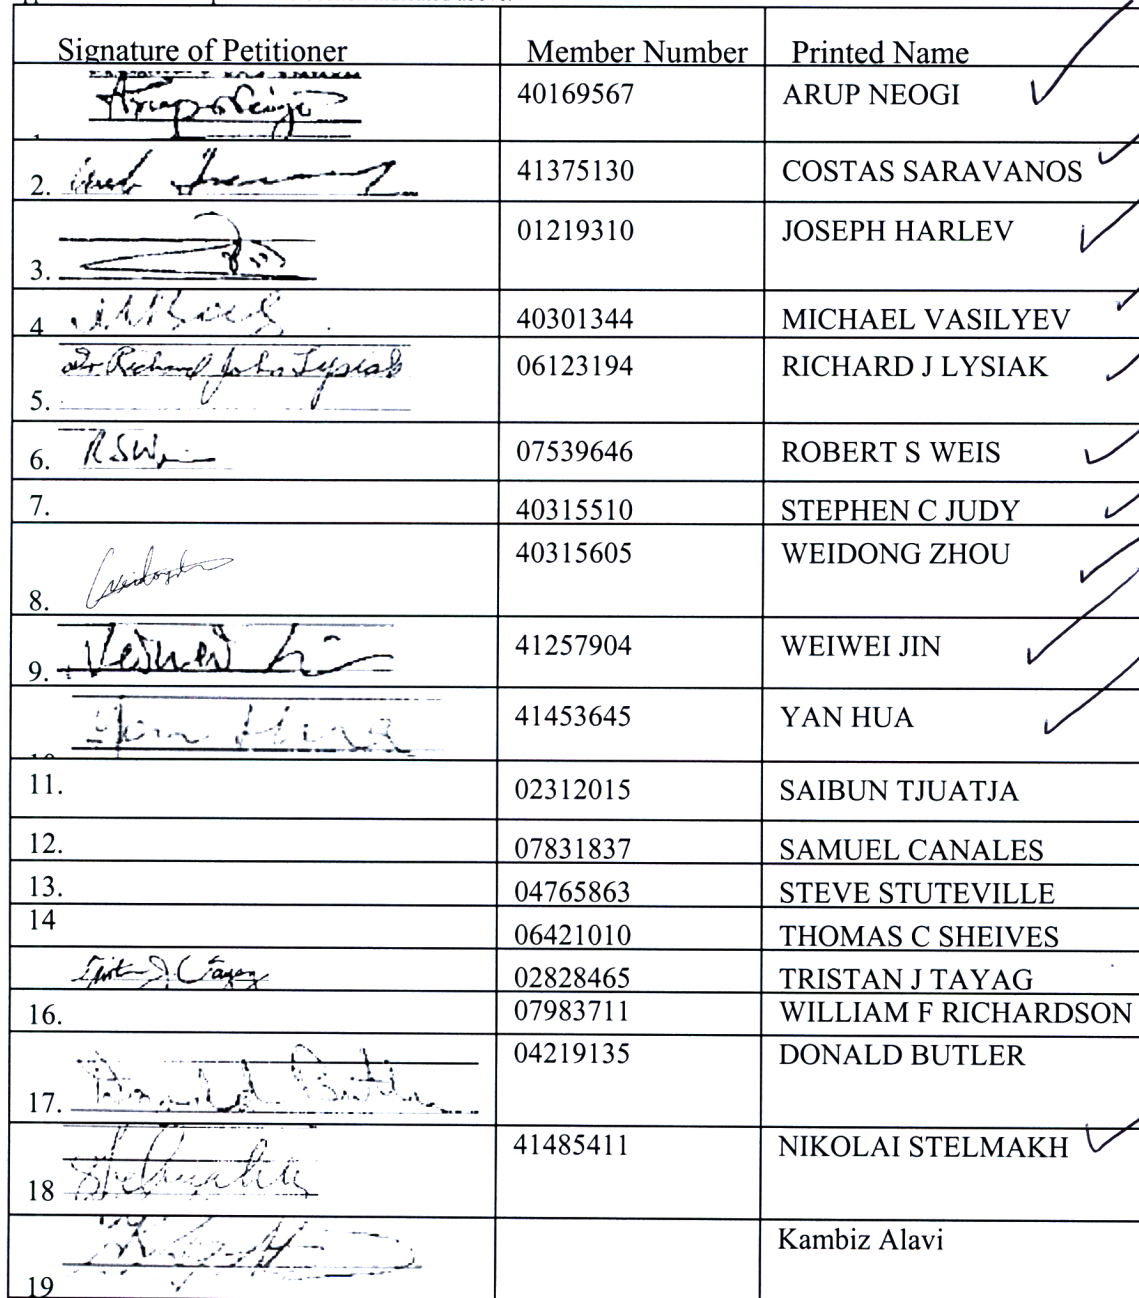 Signature of Petitioner Member Number Printed Name
Arup Neogi 40169567 ARUP NEOGI
2. 41375130 COSTAS SARAVANOS
3. 01219310 JOSEPH HARLEV
4 40301344 MICHAEL VASILYEV
Dr Richard John Lysiak 06123194 RICHARD J LYSIAK
5.
6. RSW 07539646 ROBERT S WEIS
7. 40315510 STEPHEN C JUDY
40315605 WEIDONG ZHOU
8.
9. Weiwei 41257904 WEIWEI JIN
Yan Hua 41453645 YAN HUA
11. 02312015 SAIBUN TJUATJA
12. 07831837 SAMUEL CANALES
13. 04765863 STEVE STUTEVILLE
14 06421010 THOMAS C SHEIVES
Tristan J Tayag 02828465 TRISTAN J TAYAG
16. 07983711 WILLIAM F RICHARDSON
04219135 DONALD BUTLER
17. Donald Butler
41485411 NIKOLAI STELMAKH
18 Stelmakh
Kambiz Alavi
19